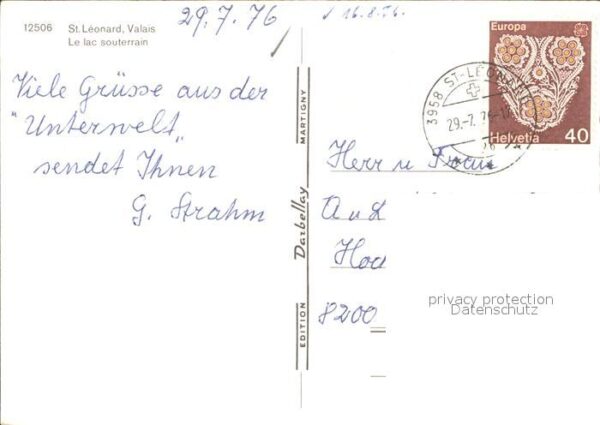 12506 St. Léonard, Valais
Le lac souterrain
29.7.76
Viele Grüsse aus der
"Unterwelt"
sendet Ihnen
G. Strahm
EDITION Darbellay MARTIGNY
√ 16.8.76.
Europa
Helvetia 40
3958 ST-LÉONARD
29.-7.76
Herr u Frau
A u L
Hoc
8200
privacy protection
Datenschutz